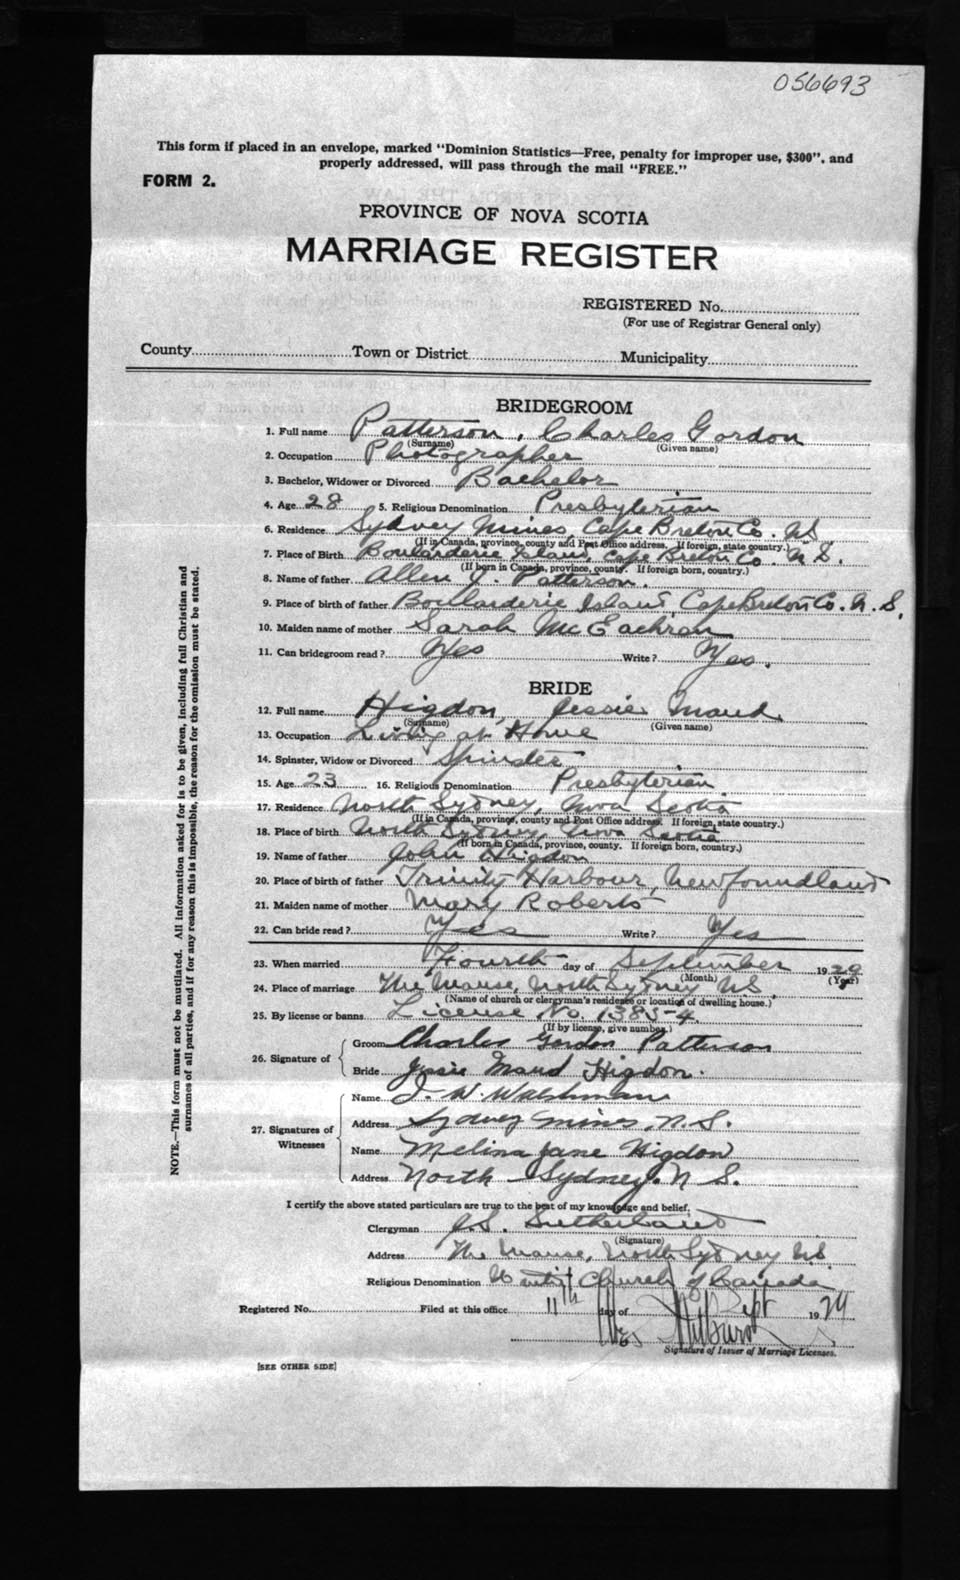 056693
This form if placed in an envelope, marked "Dominion Statistics—Free, penalty for improper use, $300", and
properly addressed, will pass through the mail "FREE."
FORM 2.
PROVINCE OF NOVA SCOTIA
MARRIAGE REGISTER
REGISTERED No.
(For use of Registrar General only)
County Town or District Municipality
BRIDEGROOM
1. Full name Patterson, Charles Gordon
(Surname) (Given name)
2. Occupation Photographer
3. Bachelor, Widower or Divorced Bachelor
4. Age 28 5. Religious Denomination Presbyterian
6. Residence Sydney Mines, Cape Breton Co. N.S.
(If in Canada, province, county and Post Office address. If foreign, state country.)
7. Place of Birth Boularderie Island, Cape Breton Co. N.S.
(If born in Canada, province, county. If foreign born, country.)
8. Name of father Allen J. Patterson.
9. Place of birth of father Boularderie Island, Cape Breton Co. N.S.
10. Maiden name of mother Sarah McEachran
11. Can bridegroom read? Yes Write? Yes.
BRIDE
12. Full name Higdon, Jessie Maud
(Surname) (Given name)
13. Occupation Living at Home
14. Spinster, Widow or Divorced Spinster
15. Age 23 16. Religious Denomination Presbyterian
17. Residence North Sydney, Nova Scotia
(If in Canada, province, county and Post Office address. If foreign, state country.)
18. Place of birth North Sydney, Nova Scotia
(If born in Canada, province, county. If foreign born, country.)
19. Name of father John Higdon
20. Place of birth of father Trinity Harbour, Newfoundland
21. Maiden name of mother Mary Roberts
22. Can bride read? Yes Write? Yes
23. When married Fourth day of September 1929
(Month) (Year)
24. Place of marriage The Manse, North Sydney N.S.
(Name of church or clergyman's residence or location of dwelling house.)
25. By license or banns License No. 1385-4
(If by license, give number.)
26. Signature of
Groom Charles Gordon Patterson
Bride Jessie Maud Higdon.
27. Signatures of Witnesses
Name J. W.
Address Sydney Mines, N.S.
Name Melina Jane Higdon
Address North Sydney. N.S.
I certify the above stated particulars are true to the best of my knowledge and belief.
Clergyman J.S. Sutherland
(Signature)
Address The Manse, North Sydney N.S.
Religious Denomination United Church of Canada
Registered No. Filed at this office 11th day of Sept 1929
Signature of Issuer of Marriage Licenses.
[SEE OTHER SIDE]
NOTE.—This form must not be mutilated. All information asked for is to be given, including full Christian and
surnames of all parties, and if for any reason this is impossible, the reason for the omission must be stated.